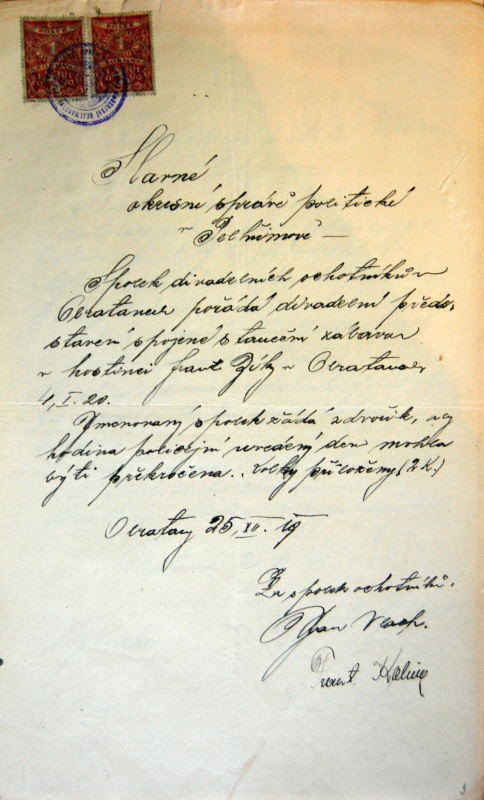 KOLEK KOLEK
1 1
KORUNA KORUNA
Slavné
okresní správě politické
v Pelhřimově —
Spolek divadelních ochotníků v
Obratanech pořádá divadelní před-
stavení spojené s taneční zábavou
v hostinci Frant. v Obratanech
4, I. 20.
Jmenovaný spolek žádá zdvořile, aby
hodina policejní uvedený den mohla
býti překročena. Kolky přiloženy (2 K.)
Obratany 25, XII. 19
Za spolek ochotníků.
Jan Vlach.
Frant. Kalina